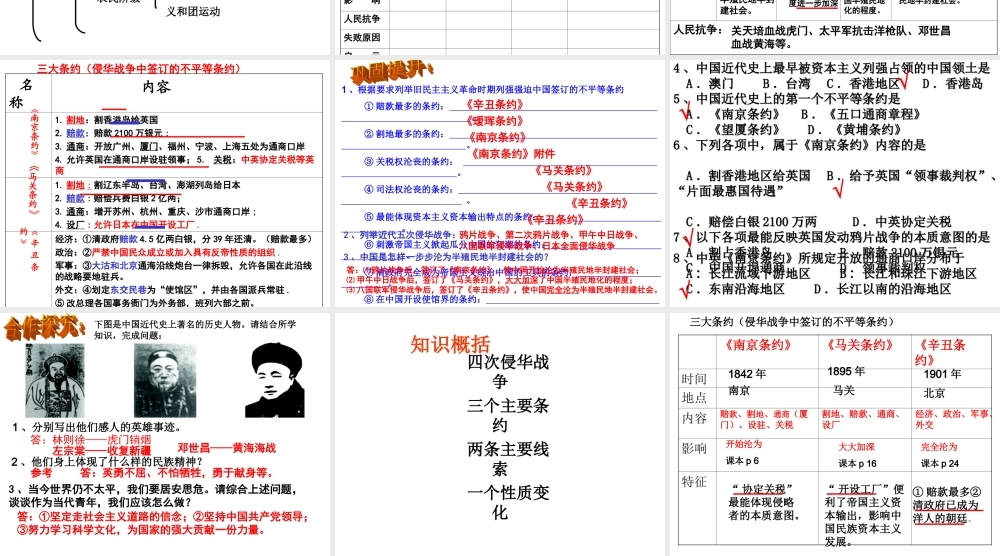 农民阶级
义和团运动
影 响
人民抗争
失败原因
建社会。
度进一步加深
国半殖民地
化的程度。
民地半封建社会。
人民抗争：
关天培血战虎门、太平军抗击洋枪队、邓世昌
血战黄海等。
三大条约（侵华战争中签订的不平等条约）
名称
内容
《南京条约》
1. 割地：割香港岛给英国
2. 赔款：赔款 2100 万银元；
3. 通商：开放广州、厦门、福州、宁波、上海五处为通商口岸
4. 允许英国在通商口岸设驻领事； 5. 关税：中英协定关税等英
商
《马关条约》
1. 割地：割辽东半岛、台湾、澎湖列岛给日本
2. 赔款：赔偿兵费白银 2 亿两；
3. 通商：增开苏州、杭州、重庆、沙市通商口岸；
4. 设厂：允许日本在中国开设工厂．
《辛丑条约》
经济：①清政府赔款 4.5 亿两白银，分 39 年还清。（赔款最多）
政治：②严禁中国民众成立或加入具有反帝性质的组织．
军事：③大沽和北京通海沿线炮台一律拆毁，允许各国在此沿线
的战略要地驻兵。
外交：④划定东交民巷为“使馆区”，并由各国派兵常驻．
⑤ 改总理各国事务衙门为外务部，班列六部之前。
巩固提升：
1 、根据要求列举旧民主主义革命时期列强强迫中国签订的不平等条约
① 赔款最多的条约：
《辛丑条约》
《瑷珲条约》
② 割地最多的条约：
《南京条约》
《南京条约》附件
③ 关税权沦丧的条约：
《马关条约》
④ 司法权沦丧的条约：
《马关条约》
《辛丑条约》
⑤ 最能体现资本主义资本输出特点的条约：
《辛丑条约》
2 、列举近代五次侵华战争：鸦片战争、第二次鸦片战争、甲午中日战争、
八国联军侵华战争、日本全面侵华战争
3 、中国是怎样一步步沦为半殖民地半封建社会的？
⑵ 甲午中日战争后，签订了《马关条约》，大大加深了中国半殖民地化的程度；
⑶ 八国联军侵华战争后，签订了《辛丑条约》，使中国完全沦为半殖民地半封建社会。
⑧ 在中国开设使馆界的条约：
4 、中国近代史上最早被资本主义列强占领的中国领土是
A ．澳门 B ．台湾 C ．香港地区 D ．香港岛
5 、中国近代史上的第一个不平等条约是
A ．《南京条约》 B ．《五口通商章程》
C ．《望厦条约》 D ．《黄埔条约》
6 、下列各项中，属于《南京条约》内容的是
A ．割香港地区给英国 B ．给予英国“领事裁判权”、
“片面最惠国待遇”
C ．赔偿白银 2100 万两 D ．中英协定关税
7 、以下各项最能反映英国发动鸦片战争的本质意图的是
8 、中英《南京条约》所规定开放的通商口岸分布于
A ．长江流域下游地区 B ．长江和珠江下游地区
C ．东南沿海地区 D ．长江以南的沿海地区
合作探究：
下图是中国近代史上著名的历史人物。请结合所学
知识，完成问题：
1 、分别写出他们感人的英雄事迹。
答：林则徐——虎门销烟
左宗棠——收复新疆
邓世昌——黄海海战
2 、他们身上体现了什么样的民族精神？
参考 答：英勇不屈、不怕牺牲，勇于献身等。
3 、当今世界仍不太平，我们要居安思危。请综合上述问题，
谈谈作为当代青年，我们应该怎么做？
答：①坚定走社会主义道路的信念；②坚持中国共产党领导；
③努力学习科学文化，为国家的强大贡献一份力量。
知识概括
四次侵华战
争
三个主要条
约
两条主要线
索
一个性质变
化
三大条约（侵华战争中签订的不平等条约）
《南京条约》
《马关条约》
《辛丑条
约》
时间
1842 年
1895 年
1901 年
地点
南京
马关
北京
内容
赔款、割地、通商（厦
门）、设驻、关税
割地、赔款、通商、
设厂
经济、政治、军事、
外交
影响
开始沦为
课本 p 6
大大加深
课本 p 16
完全沦为
课本 p 24
特征
“ 协定关税”
最能体现侵略
者的本质意图。
“ 开设工厂”便
利了帝国主义资
本输出，影响中
国民族资本主义
发展。
① 赔款最多②
清政府已成为
洋人的朝廷．